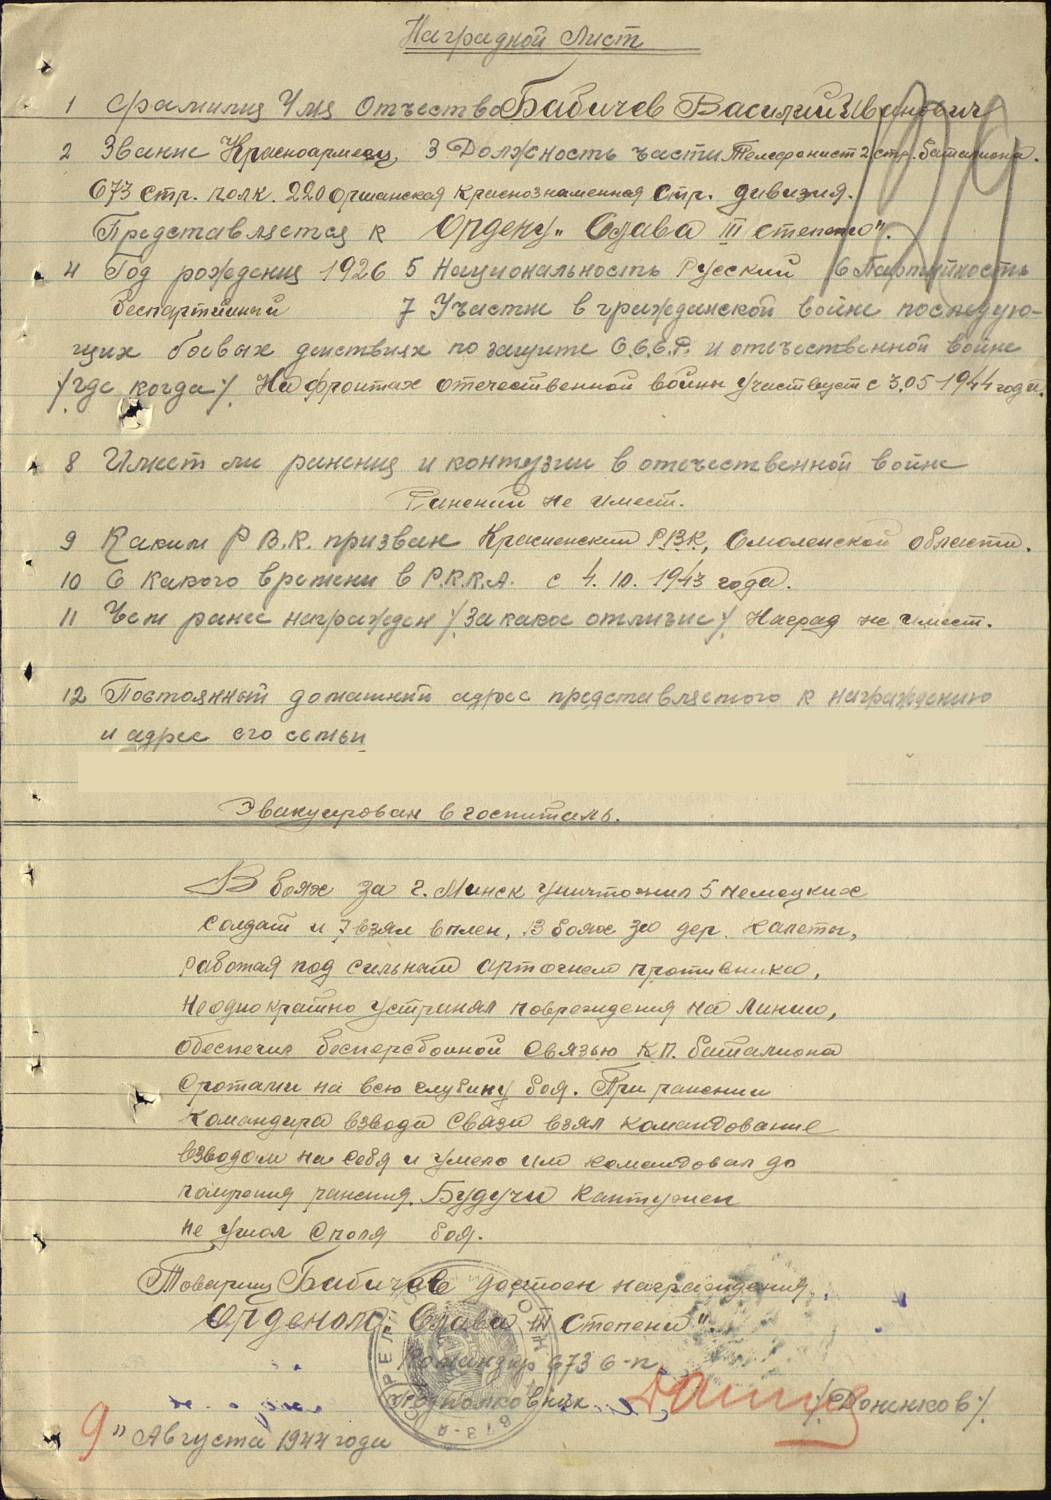 Наградной Лист
1 Фамилия Имя Отчество Бабичев Василий Иванович
2 Звание Красноармеец, 3 Должность части Телефонист 2 стр. баталиона.
673 стр. полк. 220 Оршанская Краснознаменная Стр. дивизия.
Представляется к Ордену „Слава III степени".
4 Год рождения 1926 5 Национальность Русский 6 Партийность
беспартийный 7 Участие в гражданской войне последую-
щих боевых действиях по защите С.С.С.Р. и отечественной войне
/где, когда/. На фронтах отечественной войны участвует с 3.05-1944 года.
8 Имеет ли ранения и контузии в отечественной войне
Ранений не имеет.
9 Каким Р.В.К. призван Красненским Р.В.К., Смоленской области.
10 С какого времени в Р.К.К.А. с 4.10.1943 года.
11 Чем ранее награжден /за какое отличие/ Наград не имеет.
12 Постоянный домашний адрес представляемого к награждению
и адрес его семьи
Эвакуирован в госпиталь.
В боях за г. Минск уничтожил 5 немецких
солдат и взял в плен, В боях за дер. Калеты,
работая под сильным артогнем противника,
неоднократно устранял повреждения на линии,
обеспечил бесперебойной связью К.П. баталиона
с ротами на всю глубину боя. При ранении
командира взвода связи взял командование
взводом на себя и умело им командовал до
получения ранения. Будучи контужен
не ушол с поля боя.
Товарищ Бабичев достоин награждения
Орденом „Слава III Степени".
Командир 673 с-п
Подполковник /Доненков/
9" Августа 1944 года